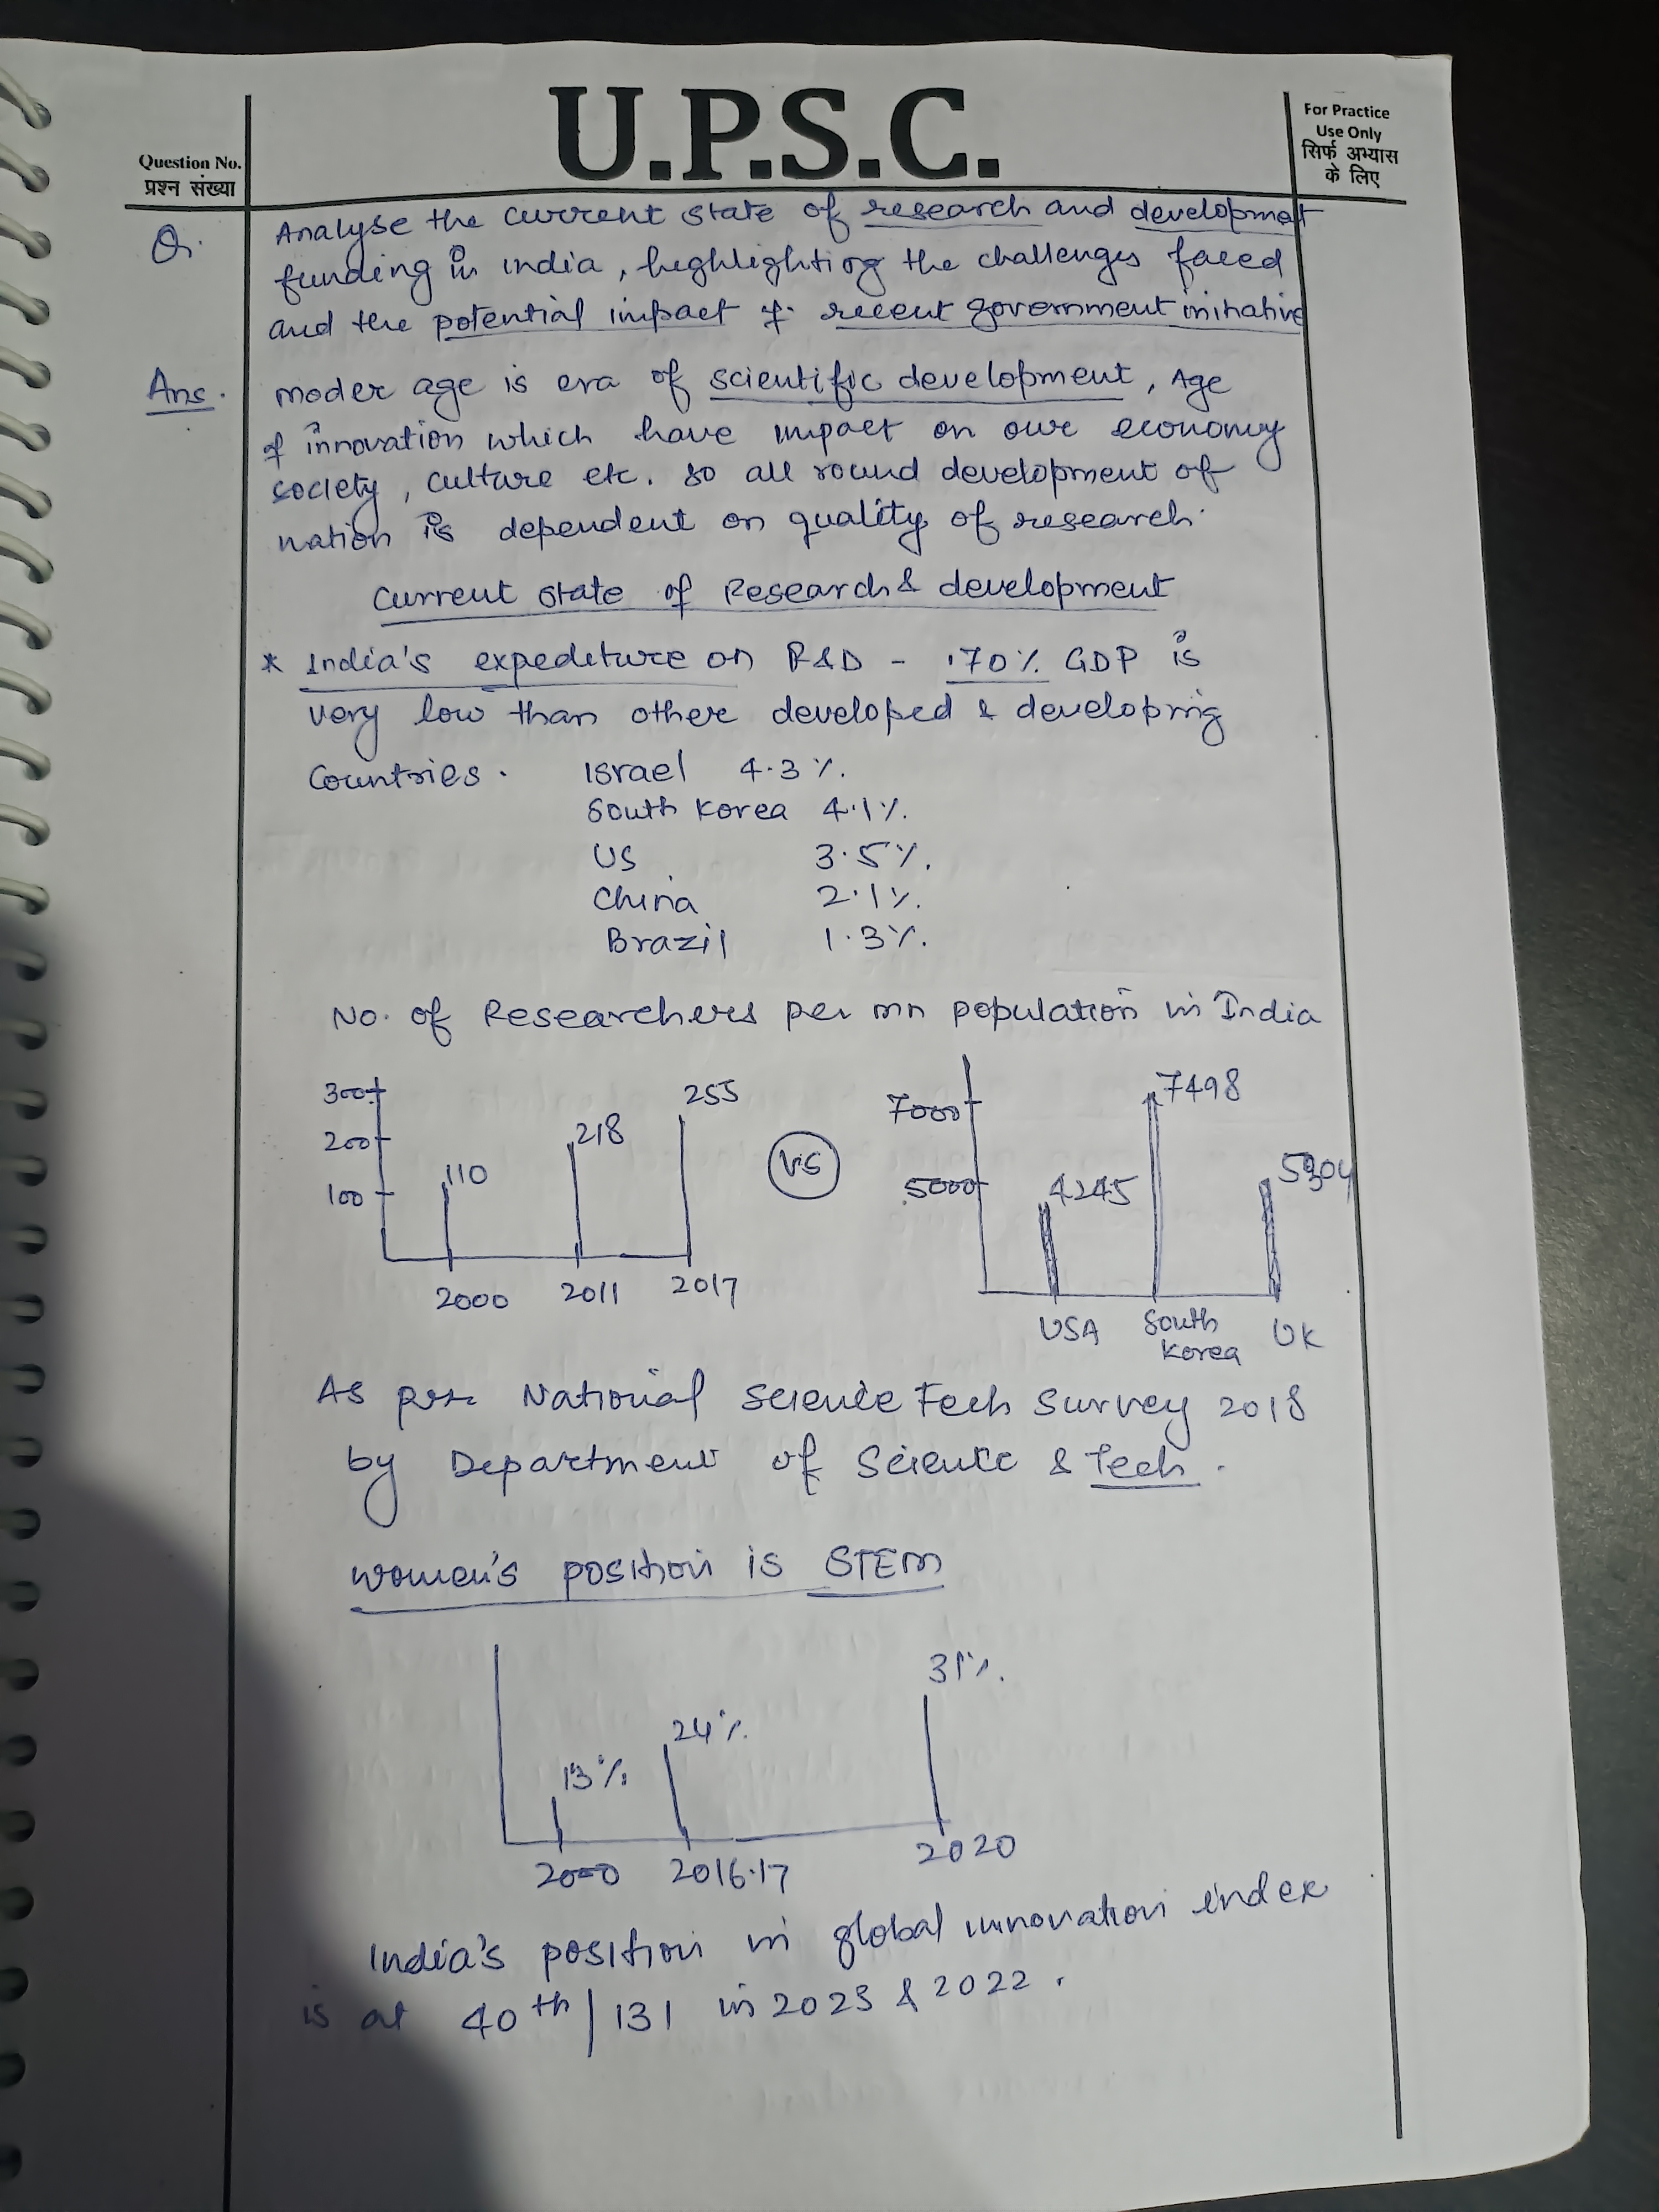 U.P.S.C.
Question No.
प्रश्न संख्या
For Practice
Use Only
सिर्फ अभ्यास
के लिए
Q. Analyse the current state of research and developmet
funding in india, highlighting the challenges faced
and the potential impact of recent government initiative
Ans. moder age is era of scientific development, Age
of innovation which have impact on our economy
society, culture etc. so all round development of
nation is dependent on quality of research.
Current state of Research & development
* India's expediture on R&D - .70% GDP is
very low than other developed & developing
Countries. Israel 4.3%.
South Korea 4.1%.
US 3.5%.
China 2.1%.
Brazil 1.3%.
No. of Researchers per mn population in India
300
200
100
110
218
255
2000 2011 2017
VS
7000
5000
4245
7498
USA South Korea UK
As per National Science Tech Survey 2018
by Department of Science & Tech.
women's position is STEM
13%
24%
31%.
2000 2016-17 2020
India's position in global innovation index
is at 40th/131 in 2023 & 2022.